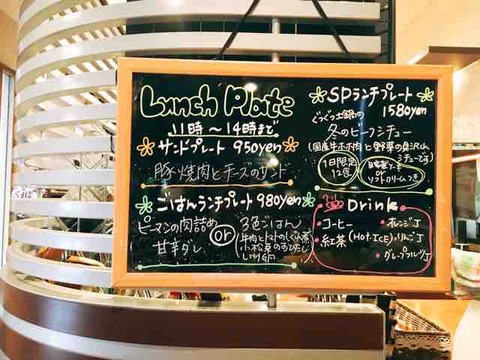 Lunch Plate
11時〜14時まで
サンドプレート 950yen
豚焼肉とチーズのサンド
ごはんランチプレート 980yen
ピーマンの肉詰め
甘辛ダレ
or
3色ごはん
小松菜のおひたし
SPランチプレート
1580yen
ぐつぐつ土鍋の
冬のビーフシチュー
(国産牛ホホ肉と野菜の贅沢
シチューです)
1日限定
12食
or
ソフトクリームつき
Drink
・コーヒー
・紅茶(Hot.ICE)
・オレンジJ
・りんごJ
・グレープフルーツJ